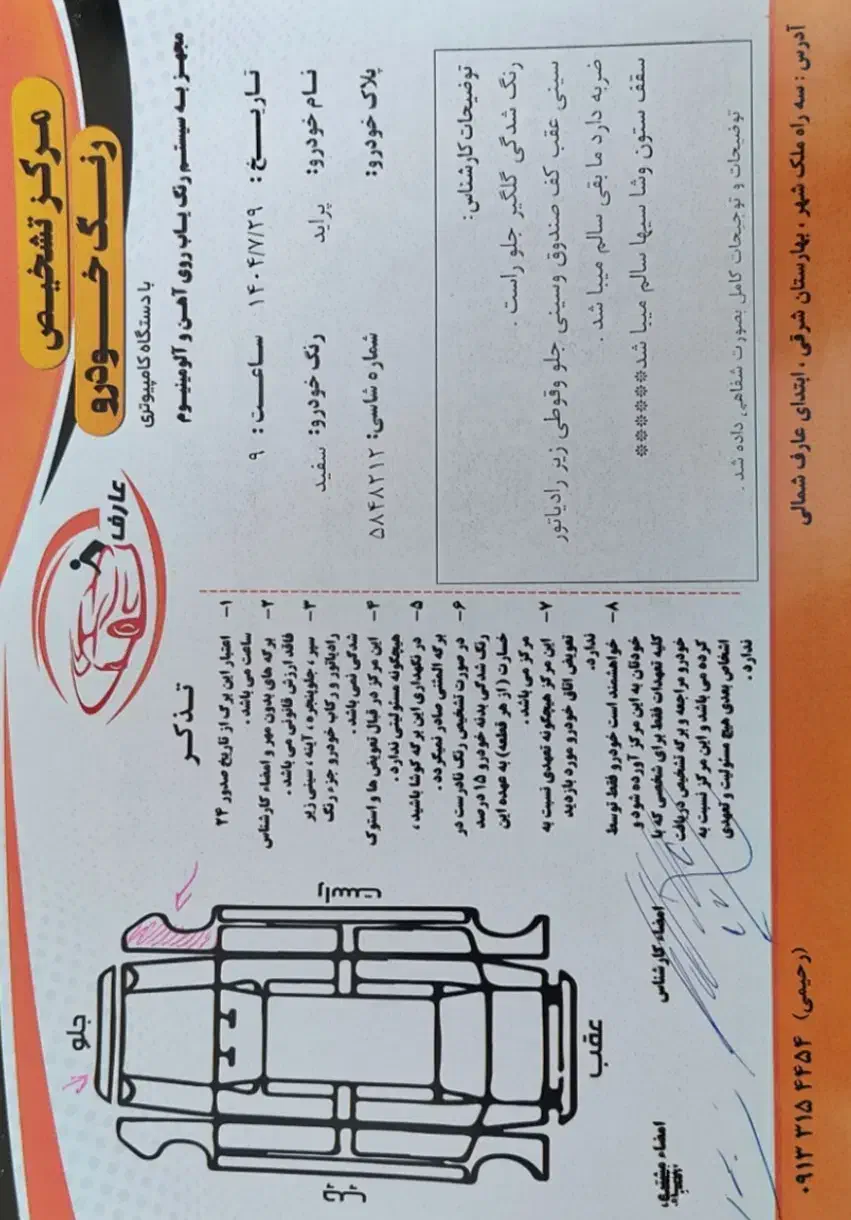 مرکز تشخیص
رنگ خودرو
با دستگاه کامپیوتری
مجهز به سیستم رنگ یاب روی آهن و آلومینیوم
عارف
تاریخ : ۱۴۰۴/۷/۲۹ ساعت : ۹
نام خودرو: پراید رنگ خودرو: سفید
پلاک خودرو: شماره شاسی: ۵۸۴۸۲۱۲
توضیحات کارشناس:
رنگ شدگی گلگیر جلو راست .
سینی عقب کف صندوق وسینی جلو وقوطی زیر رادیاتور
ضربه دارد ما بقی سالم میبا شد .
سقف ستون وشا سیها سالم میبا شد******
توضیحات و توجیحات کامل بصورت شفاهی، داده شد .
تذکر
۱- اعتبار این برگ از تاریخ صدور ۲۴
ساعت می باشد .
۲- برگه های بدون مهر و امضاء کارشناس
فاقد ارزش قانونی می باشد .
۳- سپر ، جلوپنجره ، آینه ، سینی زیر
رادیاتور و رکاب خودرو جزء رنگ
شدگی نمی باشد .
۴- این مرکز در قبال تعویض ها و استوک
هیچگونه مسئولیتی ندارد .
۵- در نگهداری این برگه کوشا باشید ،
برگه المثنی صادر نمیگردد .
۶- در صورت تشخیص رنگ نادرست در
رنگ شدگی بدنه خودرو ۱۵ درصد
خسارت ( از هر قطعه) به عهده این
مرکز می باشد .
۷- این مرکز هیچگونه تعهدی نسبت به
تعویض اتاق خودرو مورد بازدید
ندارد.
۸- خواهشمند است خودرو فقط توسط
خودتان به این مرکز آورده شود و
کلیه تعهدات فقط برای شخصی که با
خودرو مراجعه و برگه تشخیص دریافت
کرده می باشد و این مرکز نسبت به
اشخاص بعدی هیچ مسئولیت و تعهدی
ندارد .
جلو
راست
چپ
عقب
امضاء کارشناس
امضاء مشتری
آدرس : سه راه ملک شهر ، بهارستان شرقی ، ابتدای عارف شمالی
۰۹۱۳ ۳۱۵ ۴۴۵۴ (رحیمی)